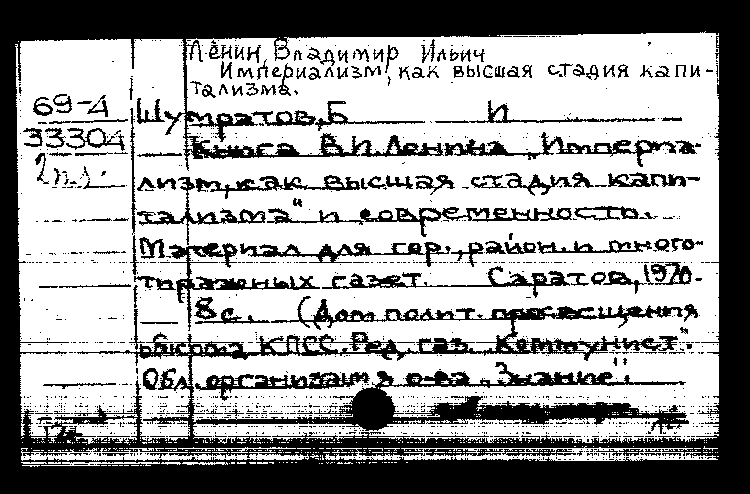 Ленин, Владимир Ильич
Империализм, как высшая стадия капи-
тализма.
69-4 Шумратов, Б И
33304 Книга В.И.Ленина „Империа-
2 лизм, как высшая стадия капи-
тализма" и современность.
Материал для гор., район. и много-
тиражных газет. Саратов, 1970.
8с. (Дом полит. просвещения
обкома КПСС. Ред. газ. „Коммунист".
Обл. организация о-ва „Знание".